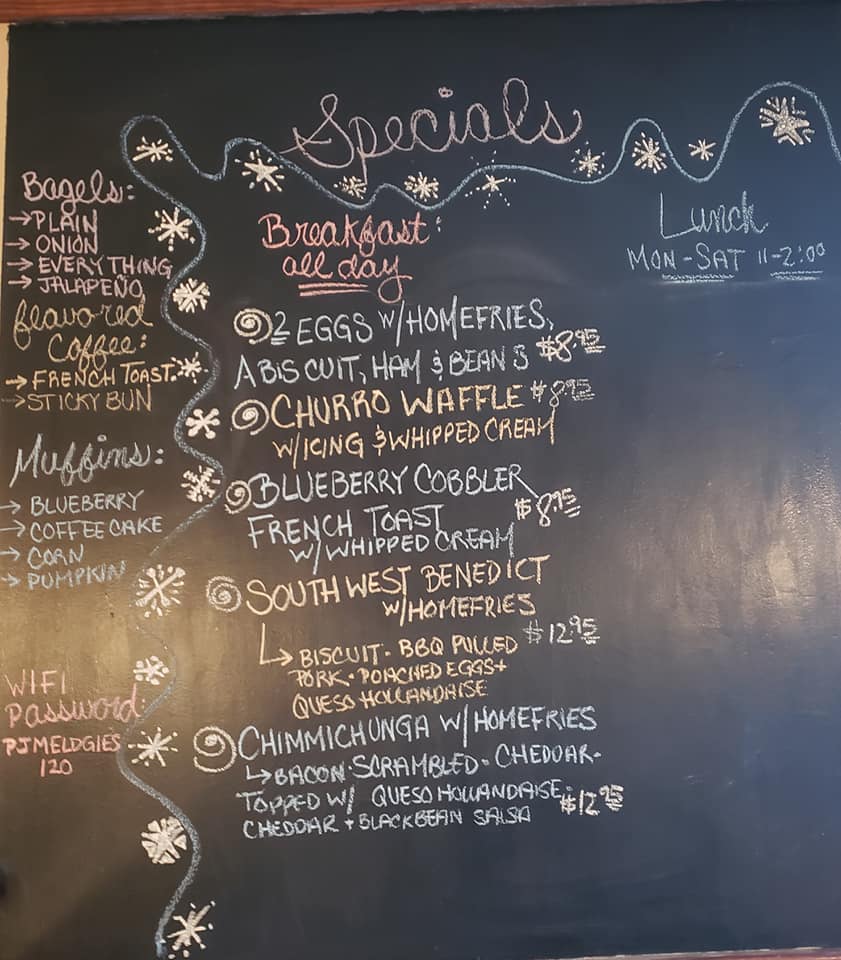 Specials
Bagels:
→PLAIN
→ONION
→EVERYTHING
→JALAPEÑO
flavored
Coffee:
→FRENCH TOAST
→STICKY BUN
Muffins:
→BLUEBERRY
→COFFEE CAKE
→CORN
→PUMPKIN
WIFI
Password
PJMELDGIES
120
Breakfast:
all day
2 EGGS W/HOMEFRIES,
A BISCUIT, HAM & BEANS $8.95
CHURRO WAFFLE $8.95
W/ICING & WHIPPED CREAM
BLUEBERRY COBBLER
FRENCH TOAST $8.95
W/WHIPPED CREAM
SOUTHWEST BENEDICT
W/HOMEFRIES
↳BISCUIT · BBQ PULLED $12.95
PORK · POACHED EGGS +
QUESO HOLLANDAISE
CHIMMICHUNGA W/HOMEFRIES
↳BACON · SCRAMBLED · CHEDDAR ·
TOPPED W/ QUESO HOLLANDAISE, $12.95
CHEDDAR + BLACKBEAN SALSA
Lunch
MON-SAT 11-2:00